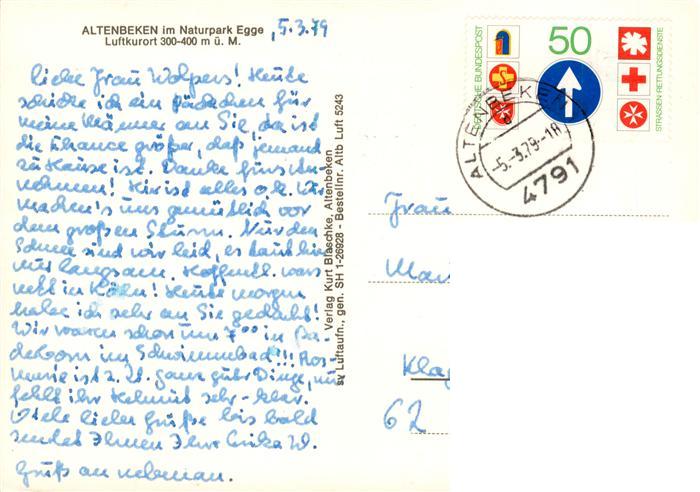 ALTENBEKEN im Naturpark Egge
Luftkurort 300-400 m ü. M.
, 5.3.79
Liebe Frau Wolpers! Heute
schicke ich ein Päckchen für
meine Männer an Sie, da ist
die Chance größer, daß jemand
zu Hause ist. Danke fürs An-
nehmen! Hier ist alles o.k. Wir
machen's uns gemütlich vor
dem großen Sturm. Nur den
Schnee sind wir leid, es taut hier
nur langsam. Hoffentl. wars
nett in Köln! Heute morgen
habe ich sehr an Sie gedacht!
Wir waren schon um 7⁰⁰ in Pa-
derborn im Schwimmbad!!! Ros-
marie ist z. Zt. ganz guter Dinge, nur
fehlt ihr Helmut sehr - klar.
Viele liebe Grüße bis bald
sendet Ihnen Ihre Erika W.
Gruß an nebenan.
Verlag Kurt Blaschke, Altenbeken
sv Luftaufn., gen. SH 1-26928 - Bestellnr. Altb Luft 5243
DEUTSCHE BUNDESPOST
50
STRASSEN-RETTUNGSDIENSTE
ALTENBEKEN
d
-5.-3.79-18
4791
Frau
Mar
Kla
62